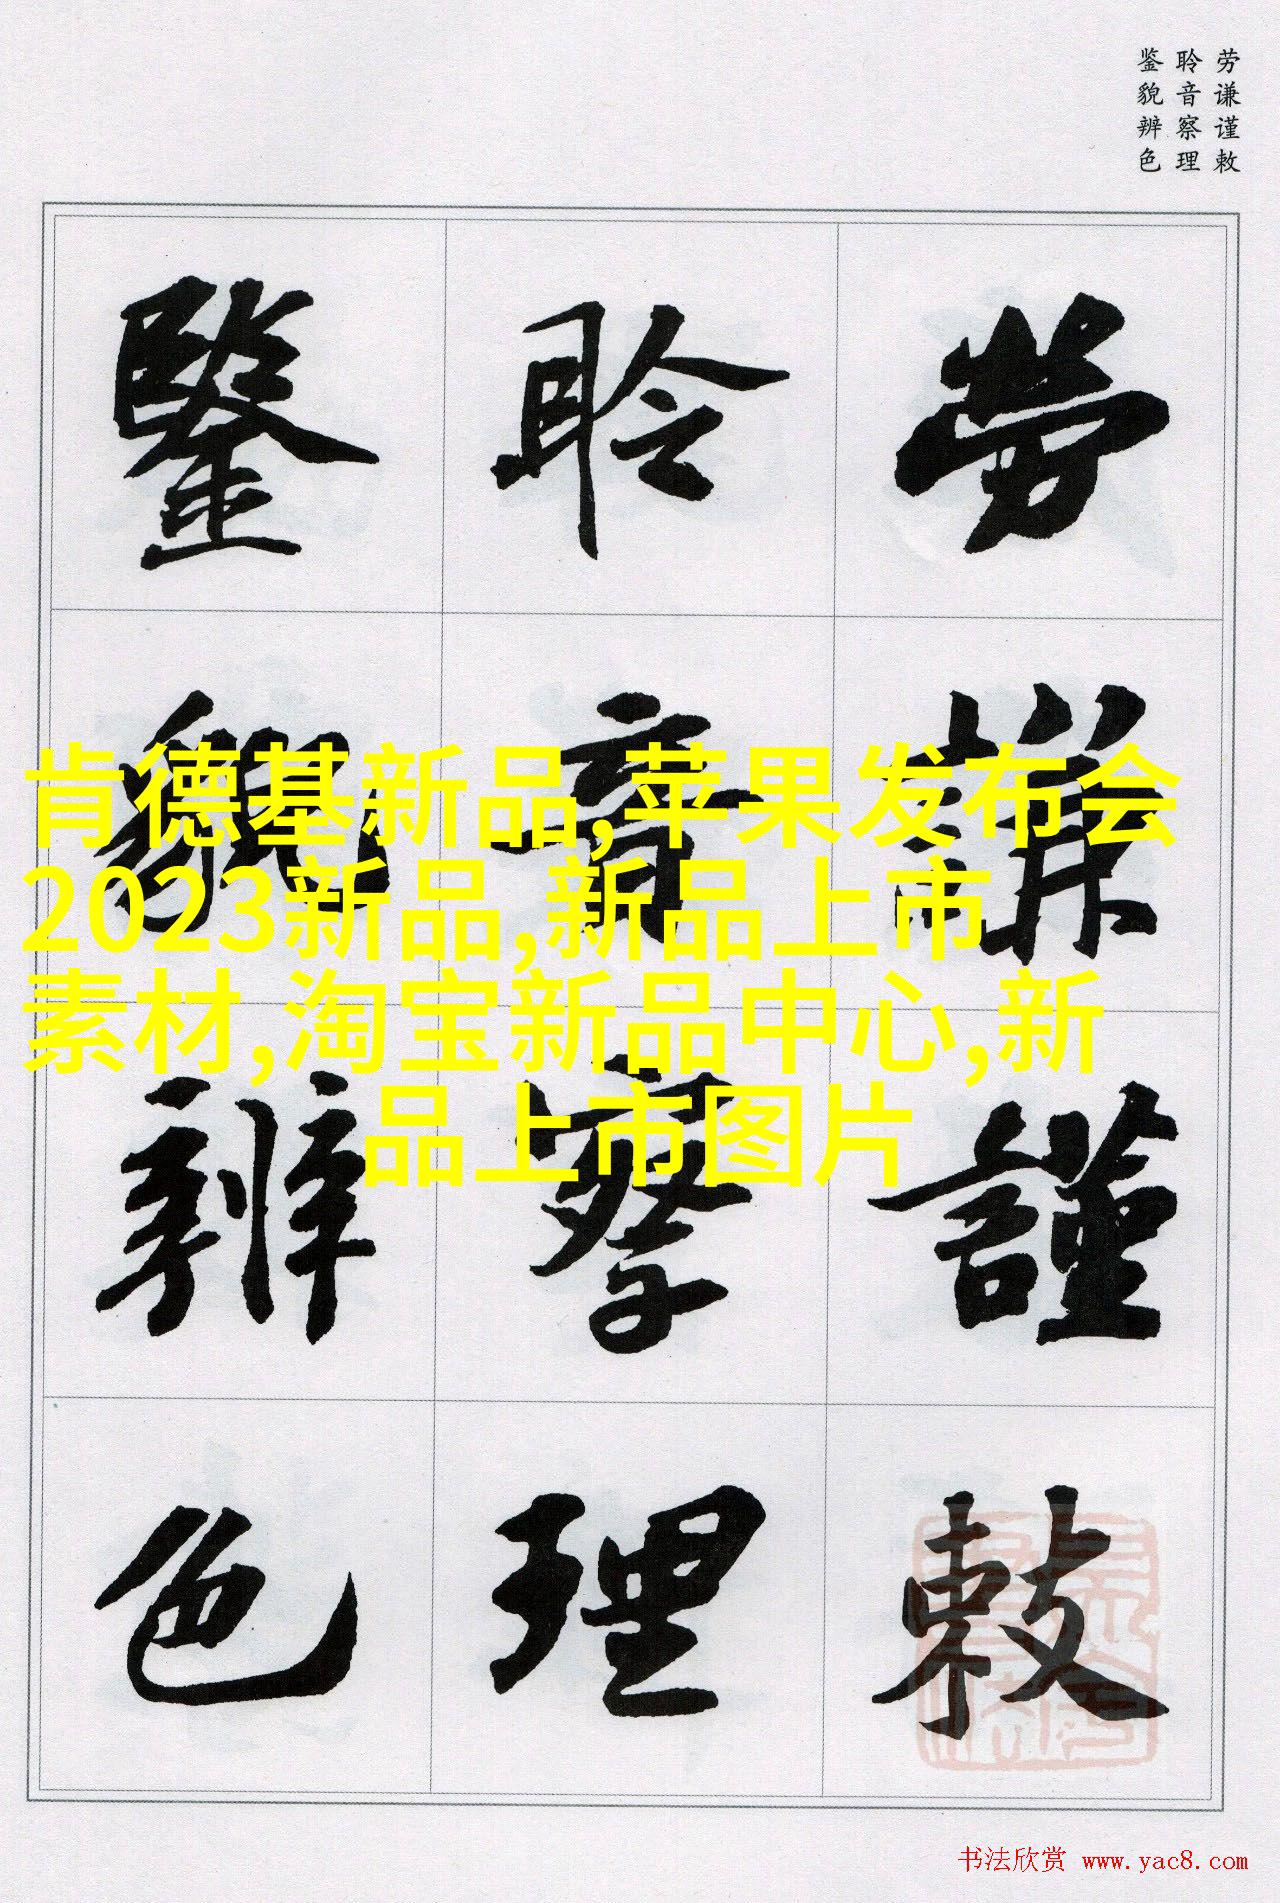 劳谦谨敕
聆音察理
鉴貌辨色
勞謙謹敕
聆音察理
鑒貌辨色
肯德基新品,苹果发布会
2023新品,新品上市
素材,淘宝新品中心,新
品上市图片
书法欣赏 www.yac8.com